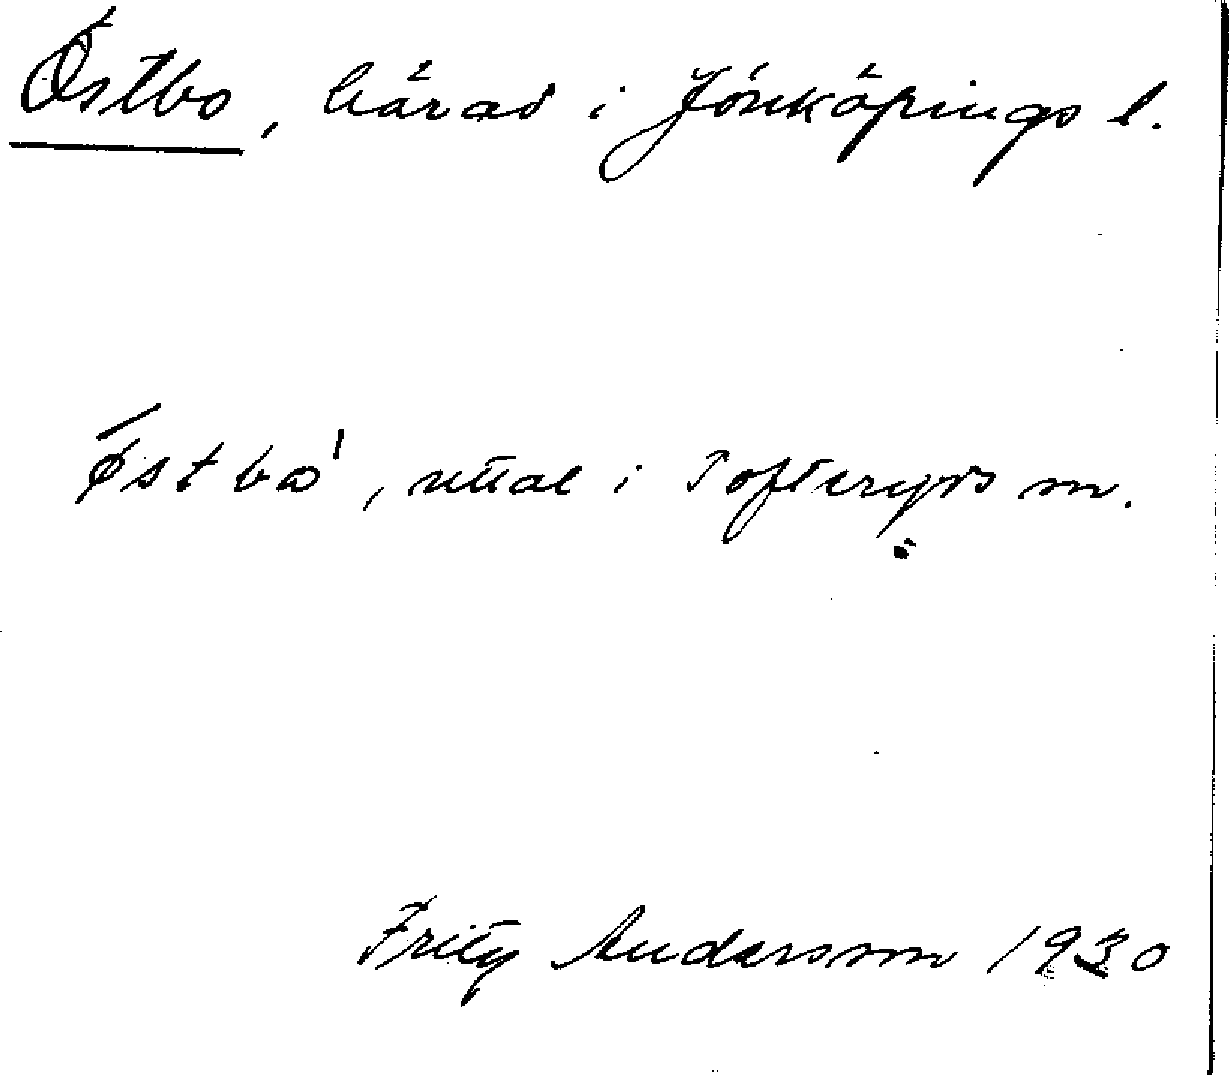 Östbo, härad i Jönköpings l.
østbo', uttal i Tofteryds sn.
Fritz Andersson 1930